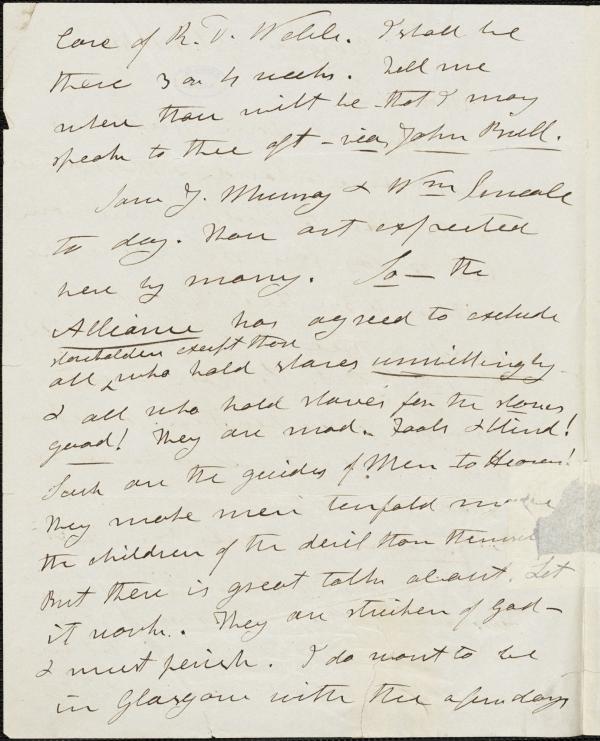 Care of R. D. Webb. I shall be
there 3 or 4 weeks. Tell me
where thou wilt be – that I may
speak to thee oft – via John Bull.
Saw J. Murray & Wm Smeal
to day. Thou art expected
here by many. So – the
Alliance has agreed to exclude
slaveholders except those
all who hold slaves unwillingly –
& all who hold slaves for the slaves
good! They are mad. Fools & blind!
Such are the guides of Men to Heaven!
They make men tenfold more
the children of the devil than
But there is great talk about. Let
it work. They are stricken of God –
& must perish. I do want to be
in Glasgow with thee a few days